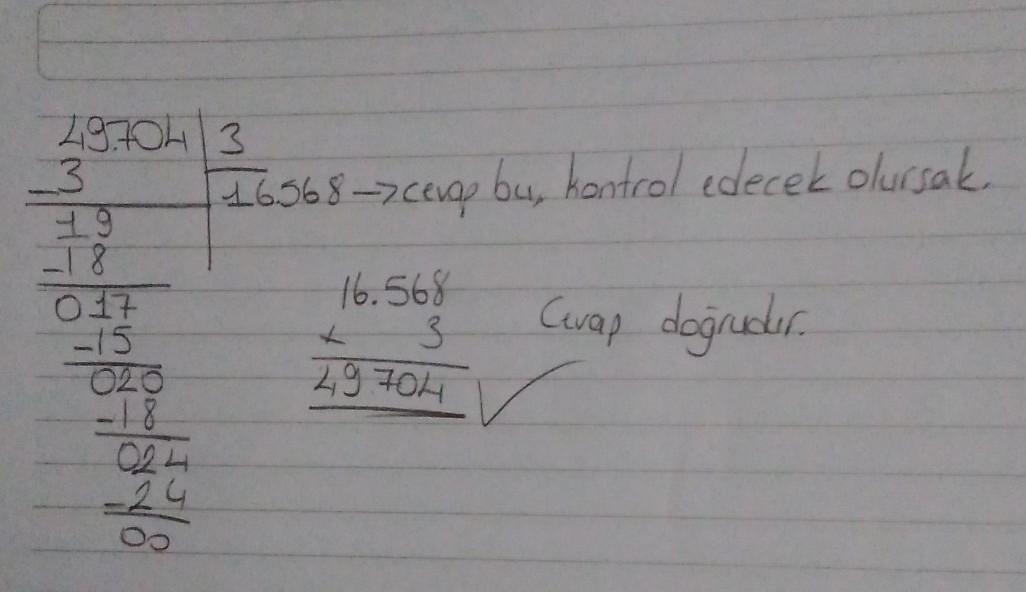 49.704 | 3
-3
16.568 → cevap bu, kontrol edecek olursak.
19
-18
017
-15
020
-18
024
-24
00
16.568
x 3
49.704 ✓
Cevap doğrudur.